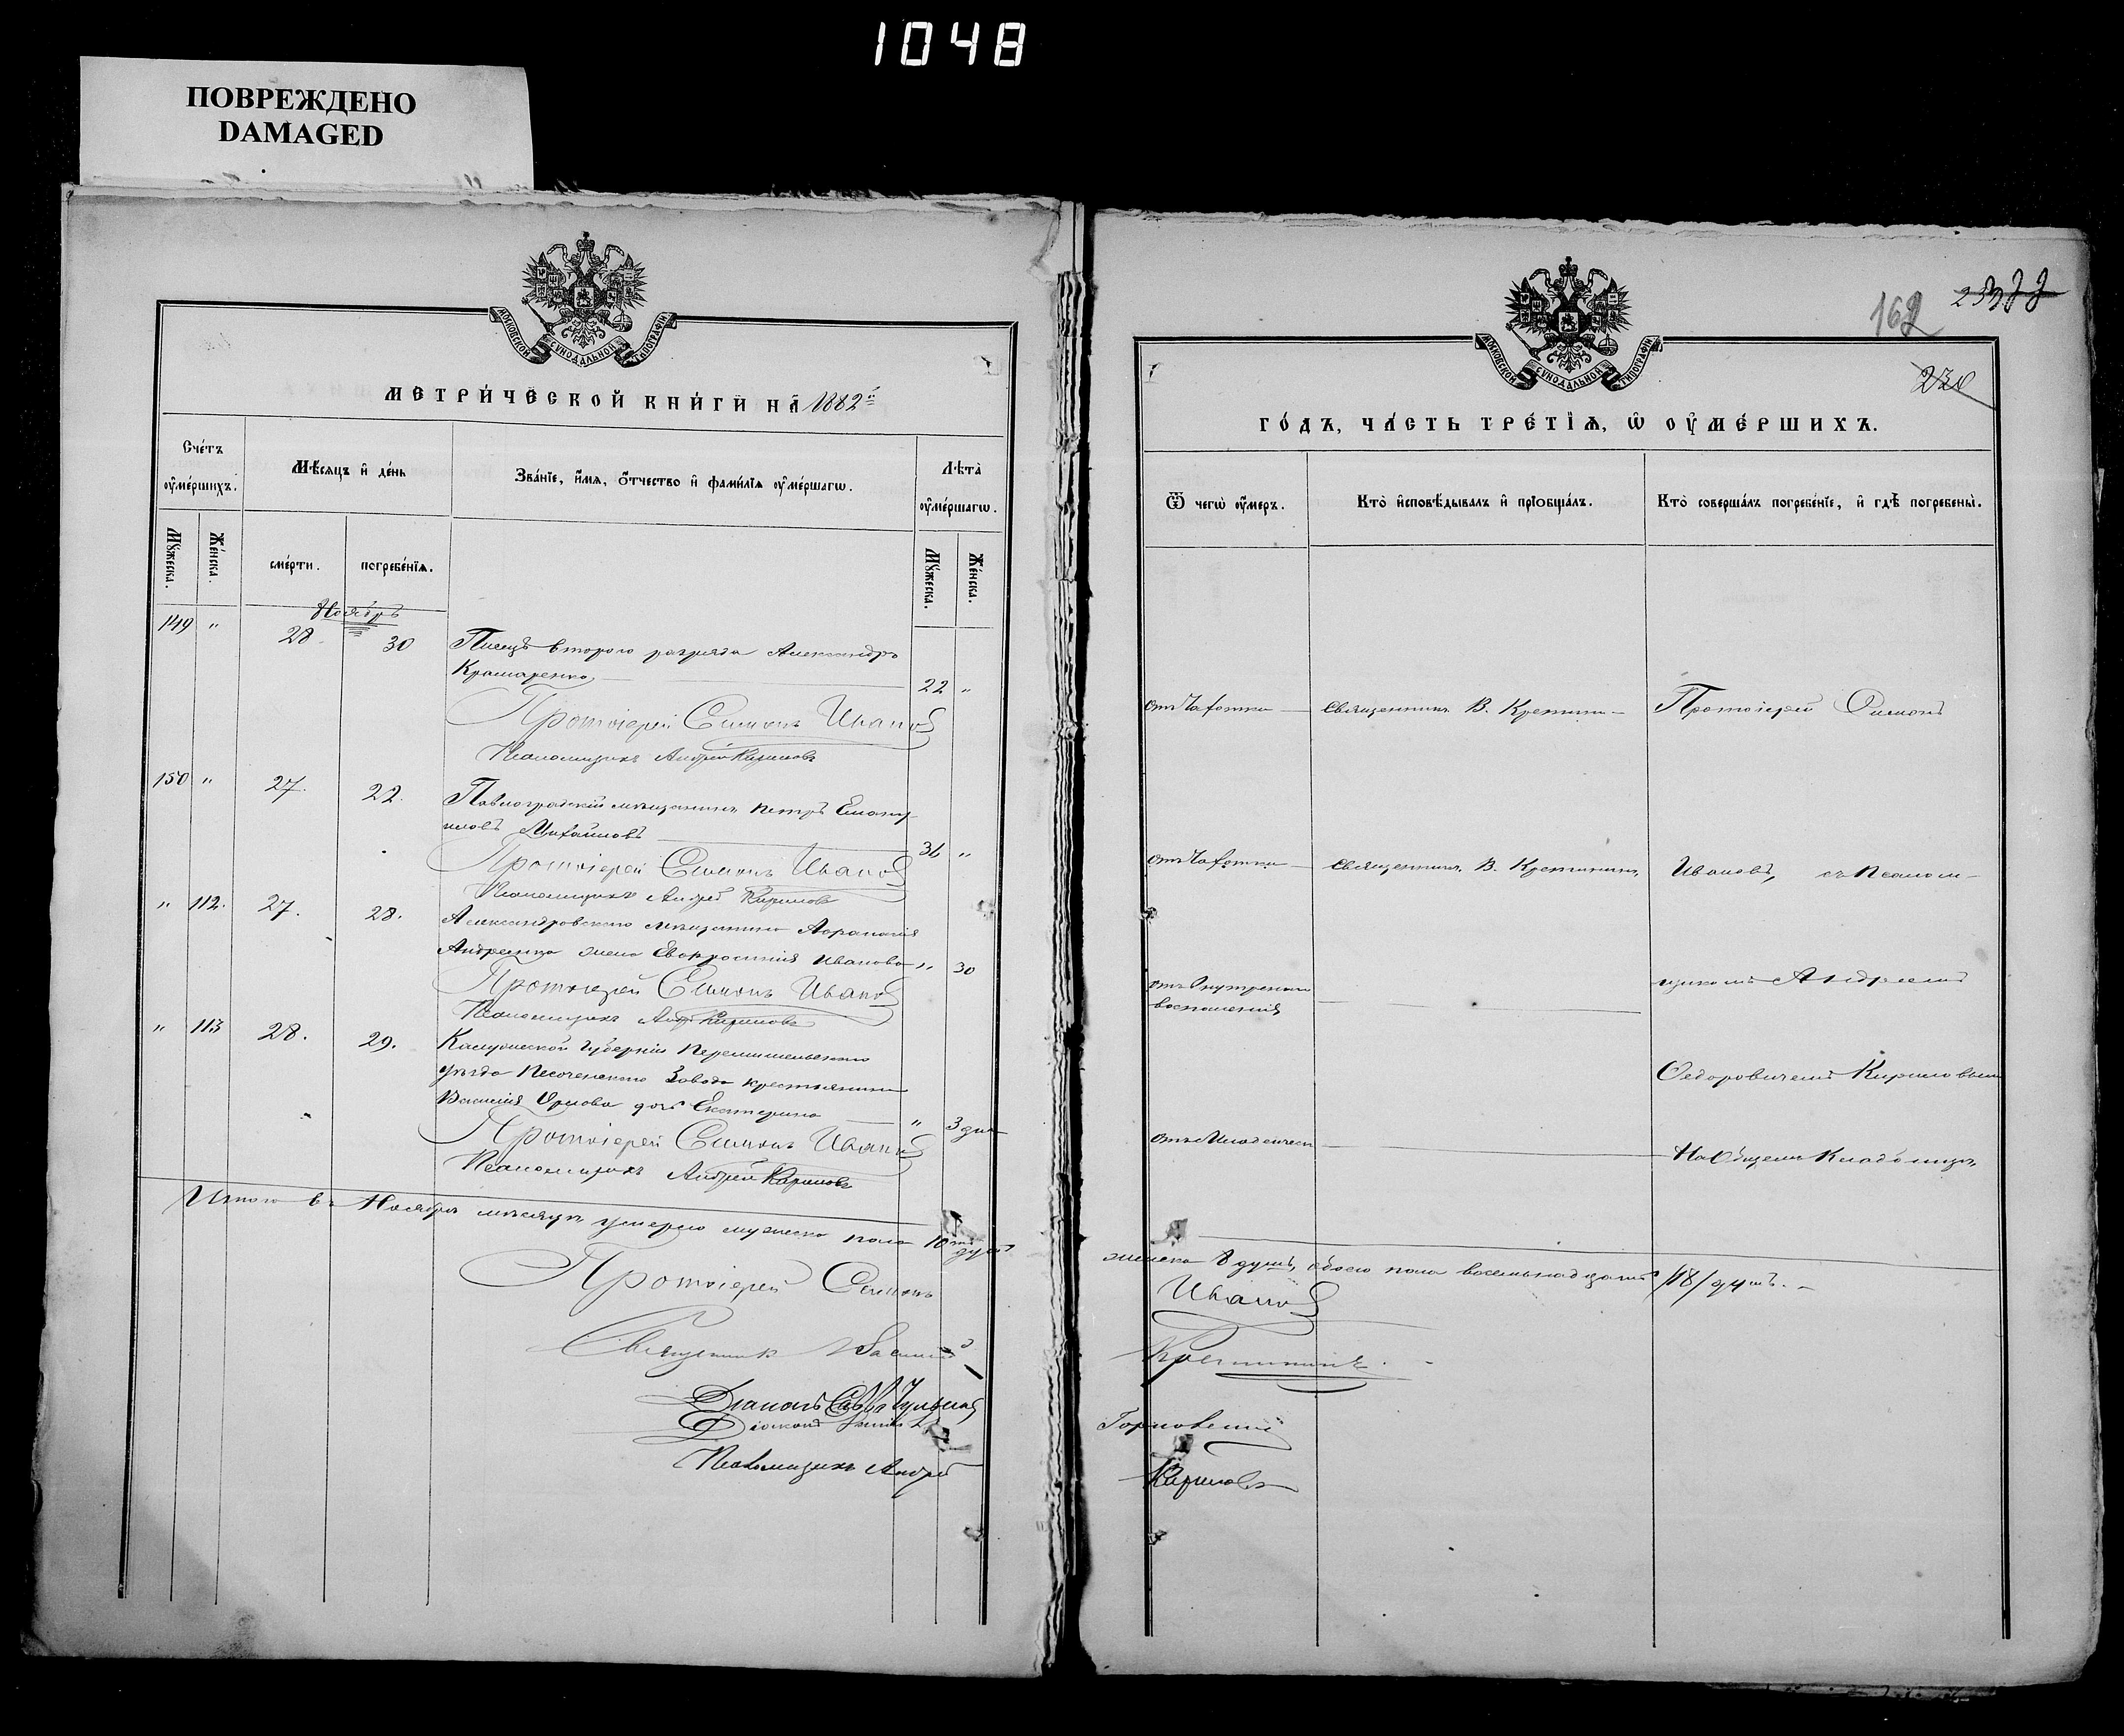 1048
ПОВРЕЖДЕНО
DAMAGED
МОСКОВСКОЙ СУНОДАЛЬНОЙ ТИПОГРАФІИ
МЕТРИ́ЧЕСКОЙ КНИ́ГИ НА̀ 1882й
Сче́тъ ᲂу҆ме́ршихъ.
Мѣ́сяцъ и҆ де́нь
Зва́нїе, и҆́мѧ, ѻ҆́тчество и҆ фами́лїѧ ᲂу҆ме́ршагѡ.
Лѣ́та ᲂу҆ме́ршагѡ.
Мꙋ́жеска.
Же́нска.
сме́рти.
погребе́нїѧ.
Мꙋ́жеска.
Же́нска.
Ноябрь
149 " 28 30 Писецъ второго разряда Александръ
Крамаренко 22 "
Протоіерей Симонъ Ивановъ
Псаломщикъ Андрей Кириловъ
150 " 27. 22. Павлоградскій мѣщанинъ Петръ Емануи-
ловъ Михайловъ 36 "
Протоіерей Симонъ Ивановъ
Псаломщикъ Андрей Кириловъ
" 112. 27. 28. Александровскаго мѣщанина Аѳанасія
Андреенко жена Евфросинія Иванова " 30
Протоіерей Симонъ Ивановъ
Псаломщикъ Андрей Кириловъ
" 113 28. 29. Калужской губерніи Перемышльскаго
уѣзда Песоченскаго Завода крестьянина
Василія Орлова дочь Екатерина " 3 дня
Протоіерей Симонъ Ивановъ
Псаломщикъ Андрей Кириловъ
Итого въ Ноябрѣ мѣсяцѣ умерло мужеска пола 10ть душъ
Протоіерей Симонъ
Священникъ Василій
Діаконъ
Діаконъ
Псаломщикъ Андрей
МОСКОВСКОЙ СУНОДАЛЬНОЙ ТИПОГРАФІИ
162
230
ГО́ДЪ, ЧА́СТЬ ТРЕ́ТЇѦ, Ѡ҆ ОУ҆МЕ́РШИХЪ.
Ѿ чегѡ̀ ᲂу҆́меръ.
Кто̀ и҆сповѣ́дывалъ и҆ прїобща́лъ.
Кто̀ соверша́лъ погребе́нїе, и҆ гдѣ̀ погребены̀.
отъ Чахотки Священникъ В. Кретинин Протоіерей Симонъ
отъ Чахотки Священникъ В. Кретининъ Ивановъ, съ Псалом-
отъ Внутреняго
воспаленія
щикомъ Андреемъ
Ѳедоровичемъ Кириловымъ
отъ Младенческ
На Общемъ Кладбищѣ
женска 8 душъ, обоего пола восемьнадцать /18/ душъ. -
Ивановъ
Кретининъ
Горловскій
Кириловъ